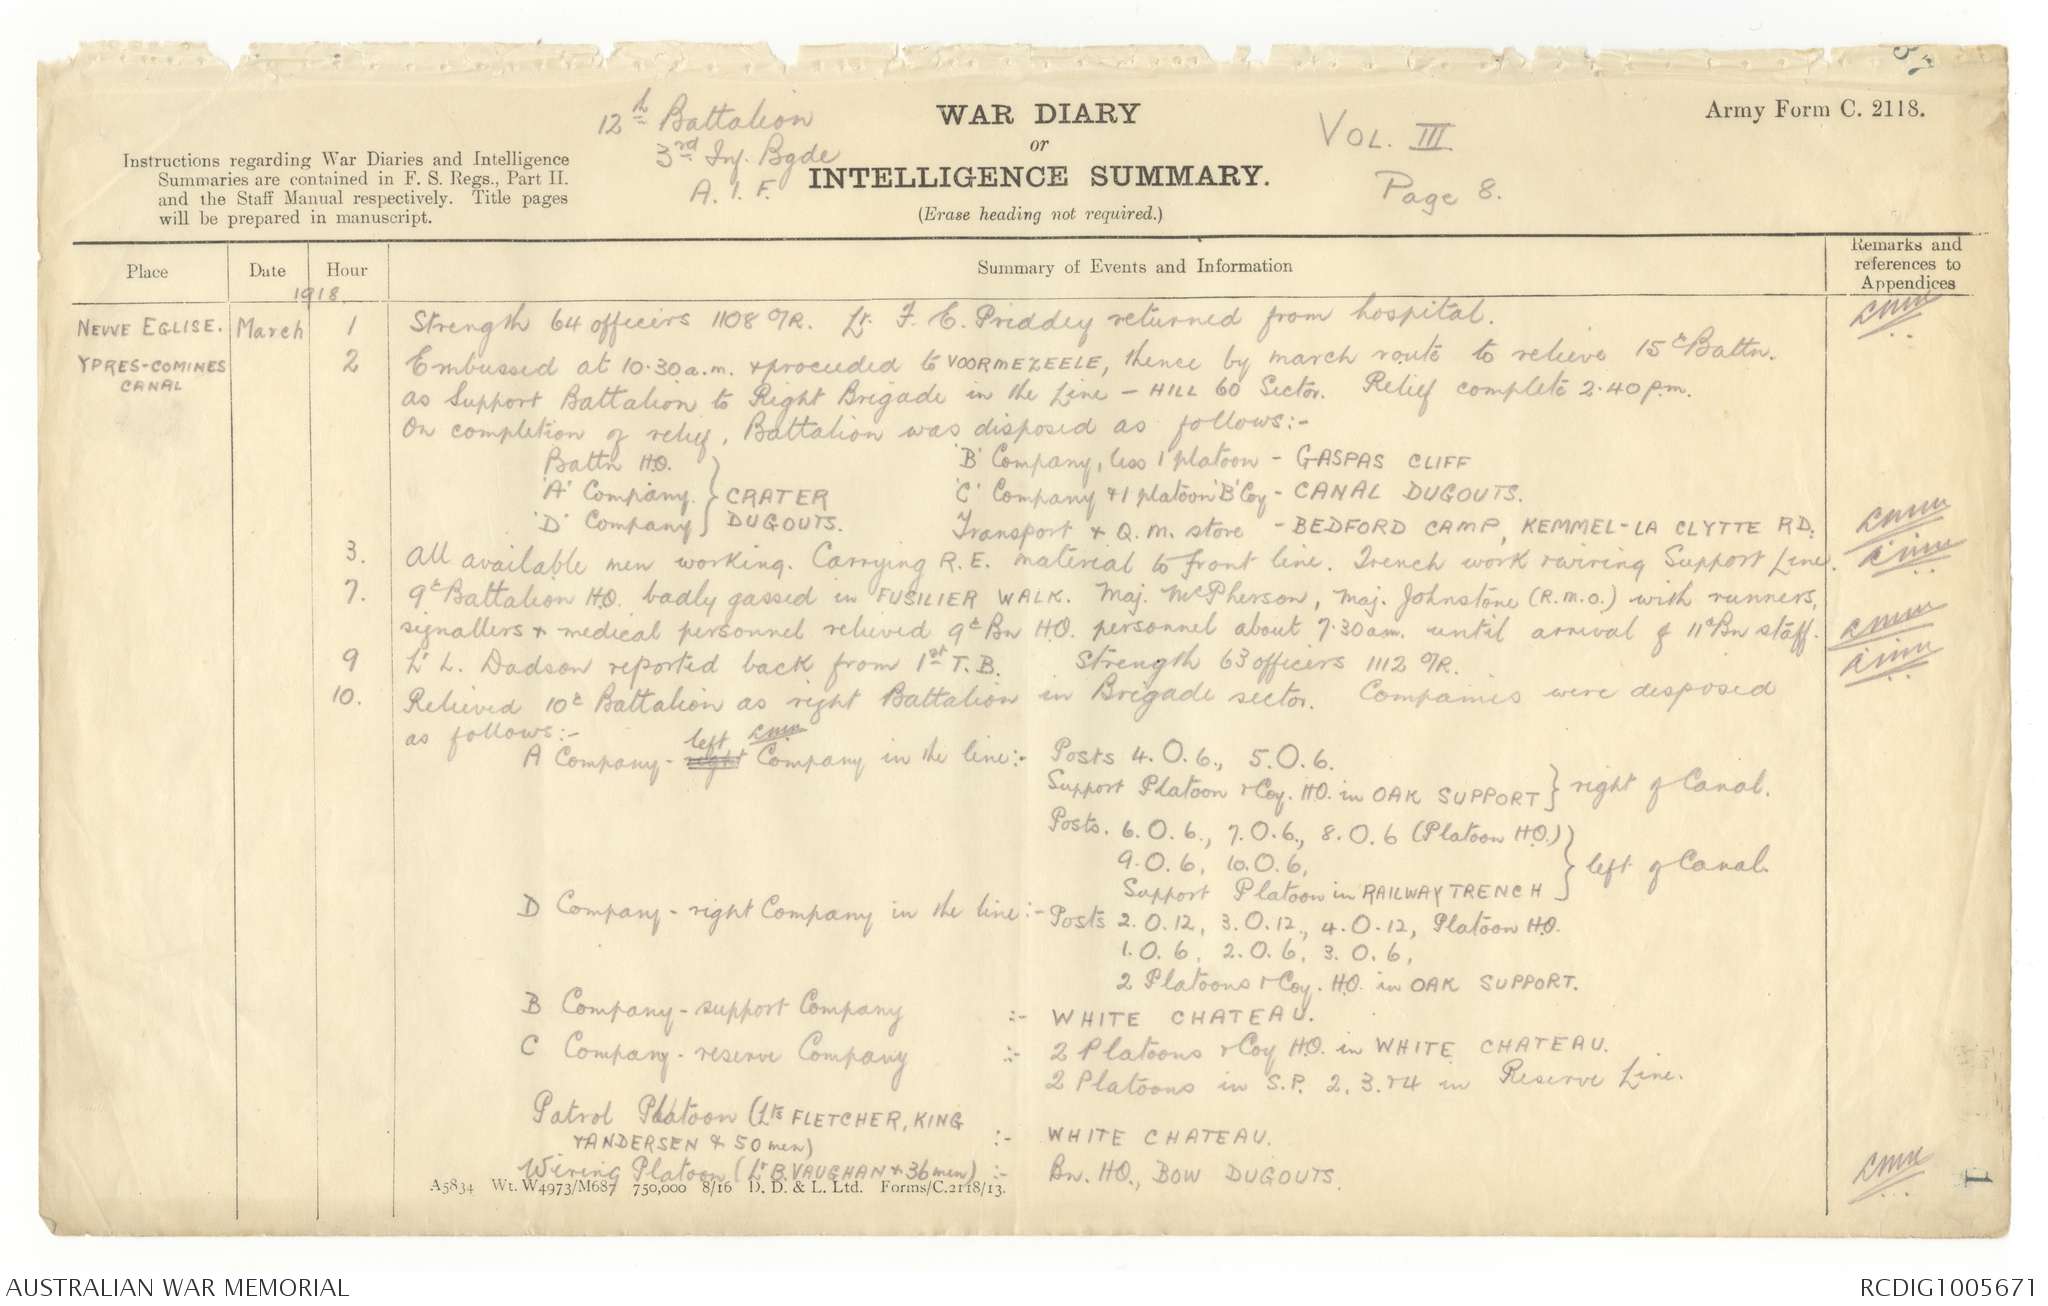 12th Battalion
3rd Inf. Bgde
A. I. F.
WAR DIARY
or
INTELLIGENCE SUMMARY.
(Erase heading not required.)
VOL. III
Page 8.
Army Form C. 2118.
Instructions regarding War Diaries and Intelligence
Summaries are contained in F. S. Regs., Part II.
and the Staff Manual respectively. Title pages
will be prepared in manuscript.
Place
Date
Hour
Summary of Events and Information
Remarks and
references to
Appendices
1918
NEUVE EGLISE. March 1 Strength 64 officers 1108 O/R. Lt. F. E. Priddey returned from hospital.
YPRES-COMINES 2 Embussed at 10.30 a.m. & proceeded to VOORMEZEELE, thence by march route to relieve 15th Battn.
CANAL as Support Battalion to Right Brigade in the Line - HILL 60 Sector. Relief complete 2.40 p.m.
On completion of relief, Battalion was disposed as follows:-
Battn H.Q. 'B' Company, less 1 platoon - GASPAS CLIFF
'A' Company. } CRATER 'C' Company & 1 platoon 'B' Coy - CANAL DUGOUTS.
'D' Company } DUGOUTS. Transport & Q.M. store - BEDFORD CAMP, KEMMEL-LA CLYTTE RD.
3. All available men working. Carrying R.E. material to front line. Trench work & wiring Support Line.
7. 9th Battalion H.Q. badly gassed in FUSILIER WALK. Maj. McPherson, Maj. Johnstone (R.M.O.) with runners,
signallers & medical personnel relieved 9th Bn H.Q. personnel about 7.30 am. until arrival of 11th Bn staff.
9 Lt L. Dadson reported back from 1st T.B. Strength 63 officers 1112 O/R.
10. Relieved 10th Battalion as right Battalion in Brigade sector. Companies were disposed
as follows:-
left
A Company - right Company in the line:- Posts 4.O.6., 5.O.6.
Support Platoon & Coy. H.Q. in OAK SUPPORT } right of Canal.
Posts. 6.O.6., 7.O.6., 8.O.6 (Platoon H.Q.)
9.O.6, 10.O.6, } left of Canal.
Support Platoon in RAILWAY TRENCH
D Company - right Company in the line:- Posts 2.O.12, 3.O.12., 4.O.12, Platoon H.Q.
1.O.6, 2.O.6, 3.O.6,
2 Platoons & Coy. H.Q. in OAK SUPPORT.
B Company - support Company :- WHITE CHATEAU.
C Company - reserve Company :- 2 Platoons & Coy H.Q. in WHITE CHATEAU.
2 Platoons in S.P. 2, 3. & 4 in Reserve Line.
Patrol Platoon (Lts FLETCHER, KING
& ANDERSEN & 50 men) :- WHITE CHATEAU.
Wiring Platoon (Lt B. VAUGHAN & 36 men) :- Bn. H.Q., BOW DUGOUTS.
A5834 Wt. W4973/M687 750,000 8/16 D. D. & L. Ltd. Forms/C.2118/13.
AUSTRALIAN WAR MEMORIAL
RCDIG1005671